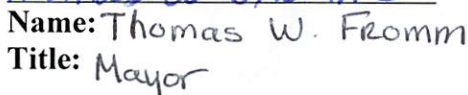 Name: Thomas W. Fromm
Title: Mayor